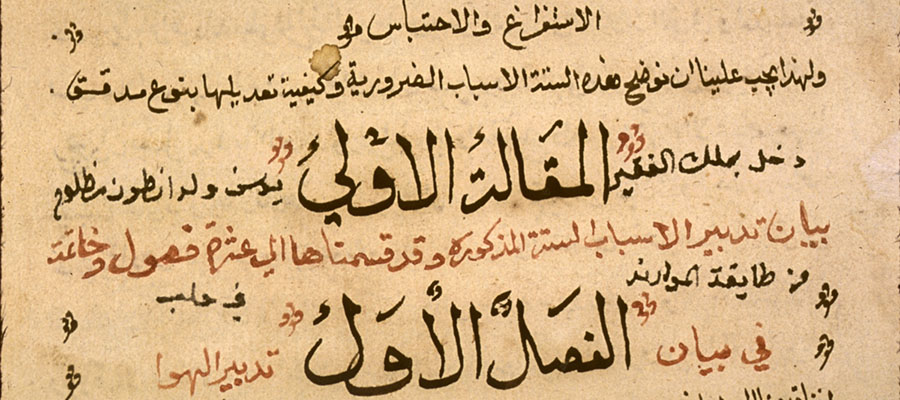 الاستفراغ والاحتباس
ولهذا يجب علينا ان نوضح هذه الستة الاسباب الضرورية وكيفية تعديلها بنوع مدقق .
دخل بملك الفقير المقالة الاولي يوسف ولد انطون مظلوم
بيان تدبير الاسباب الستة المذكورة وقد قسمناها الي عشرة فصول وخاتمة
من طايفة الموارنه في حلب
في بيان الفصل الأول تدبير الهوا